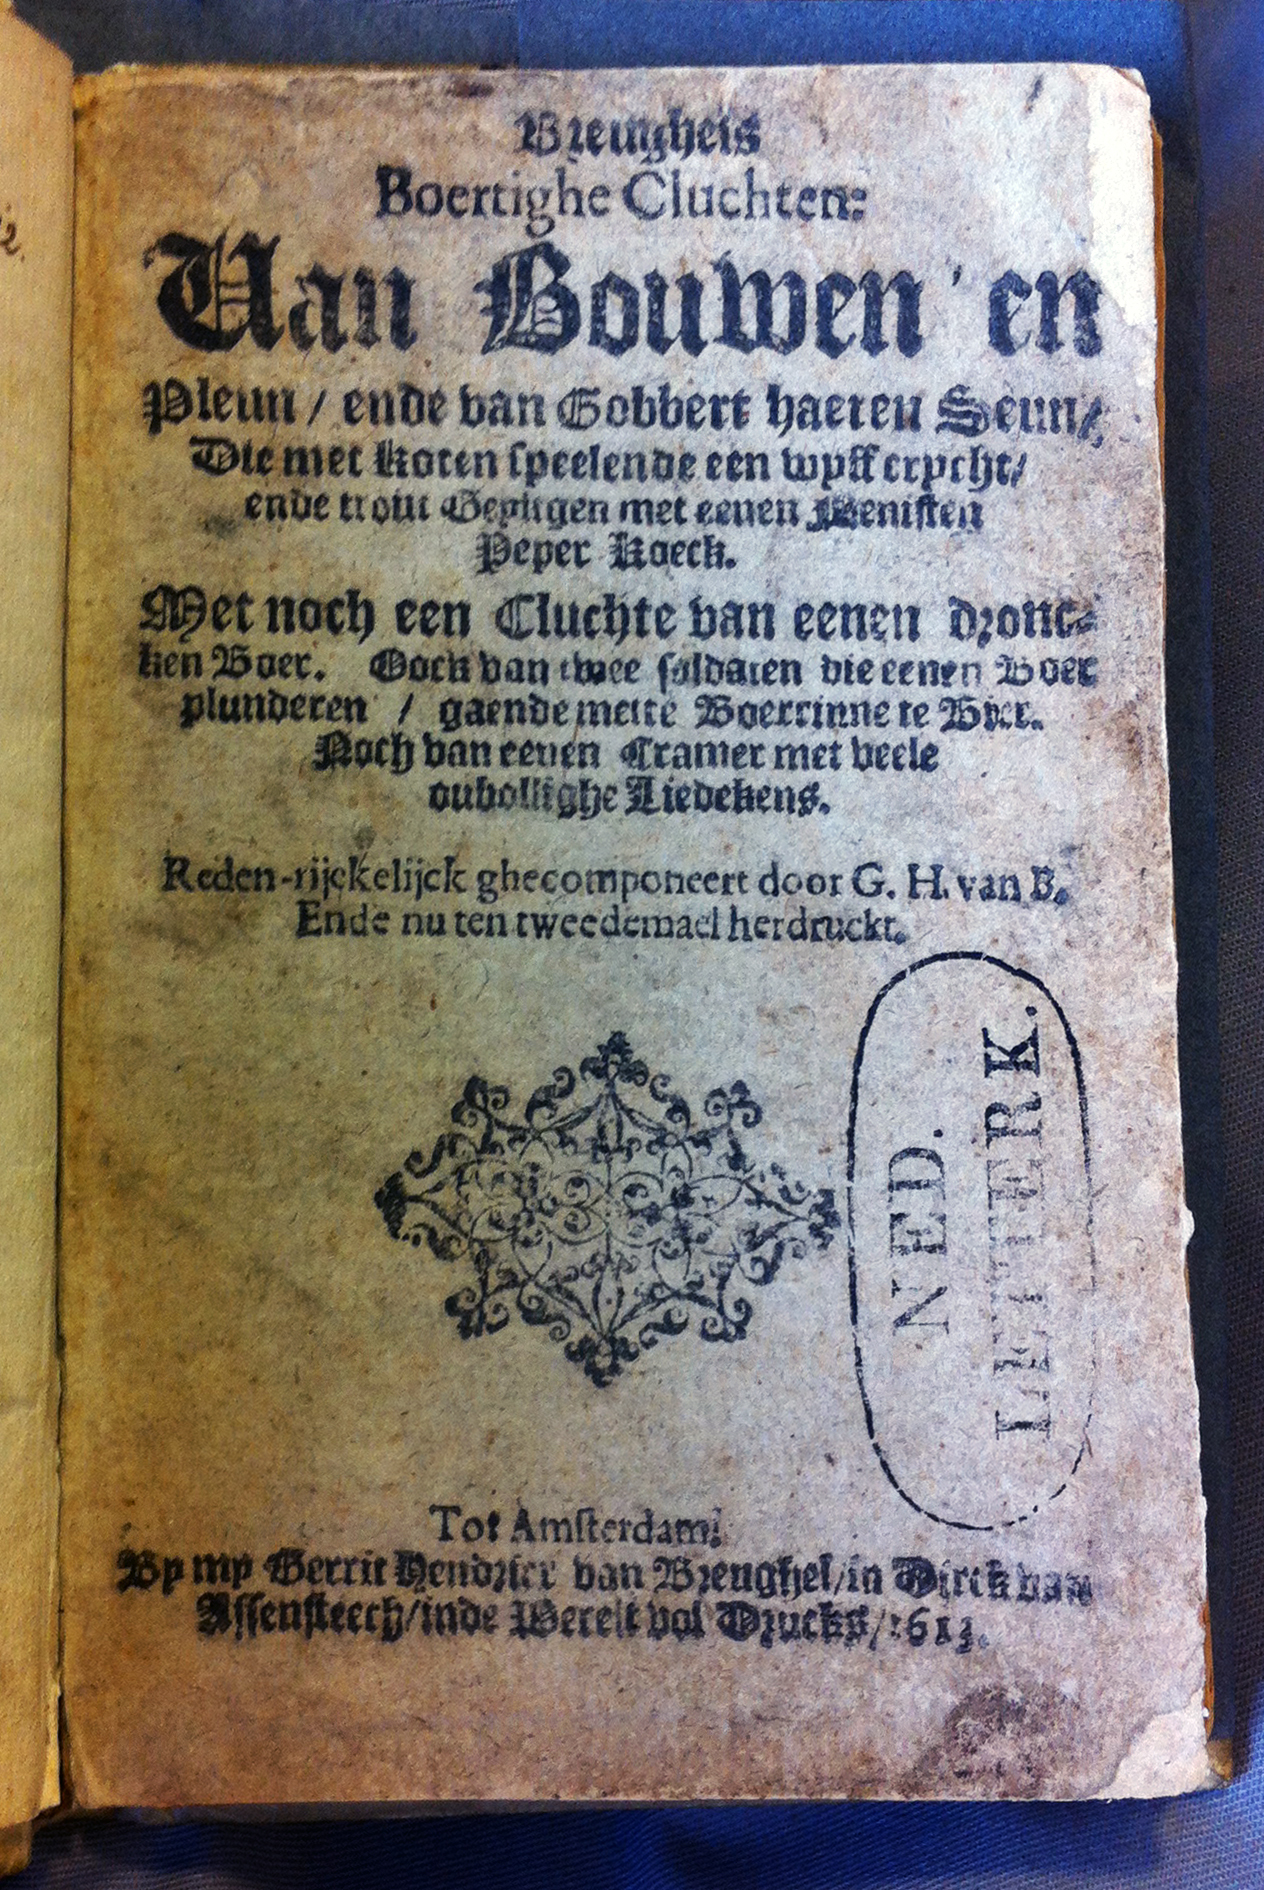 Breughels
Boertighe Cluchten:
Van Bouwen en
Pleun / ende van Gobbert haeren Seun /
Die met koten speelende een wyff crycht /
ende trout Gepitgen met eenen Menisten
Peper Koeck.
Met noch een Cluchte van eenen dronc-
ken Boer. Oock van twee soldaten die eenen Boer
plunderen / gaende mette Boerrinne te Bier.
Noch van eenen Cramer met veele
oubollighe Liedekens.
Reden-rijckelijck ghecomponeert door G. H. van B.
Ende nu ten tweedemael herdruckt.
NED.
LETTERK.
Tot Amsterdam,
By my Gerrit Hendricx van Breughel / in Dirck van
Assensteech / inde Werelt vol Drucks / 1613.